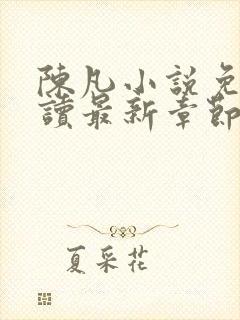 陳凡小說免
讀最新章節
夏采花